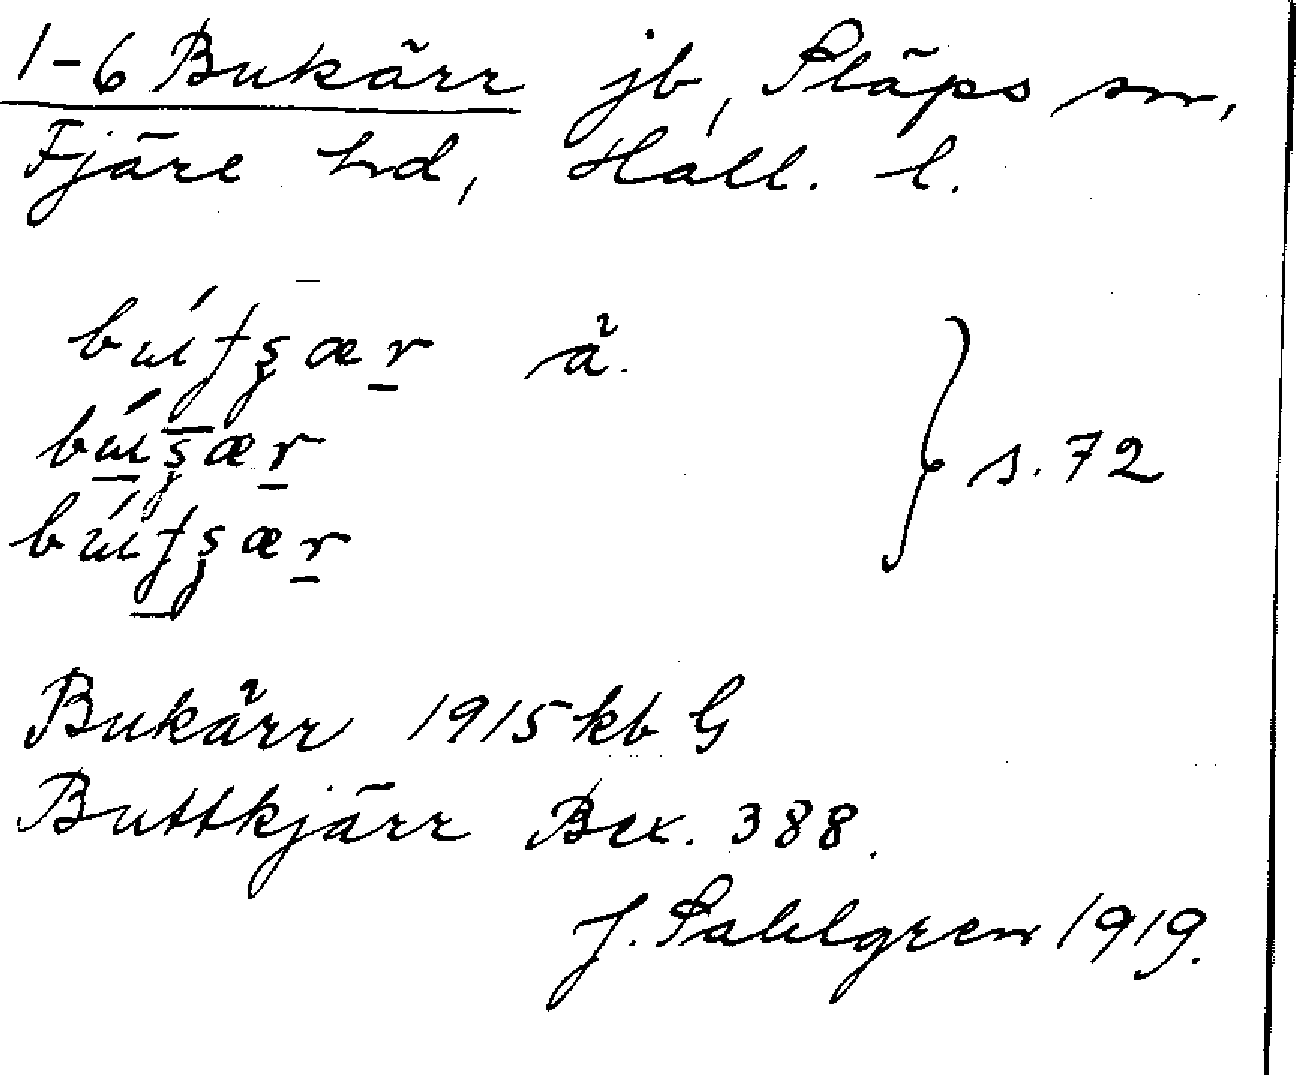 1-6 Bukärr jb, Släps sn,
Fjäre hd, Hall. l.
å.
s. 72
Bukärr 1915 kb G
Buttkjärr Bex. 388.
J. Sahlgren 1919.